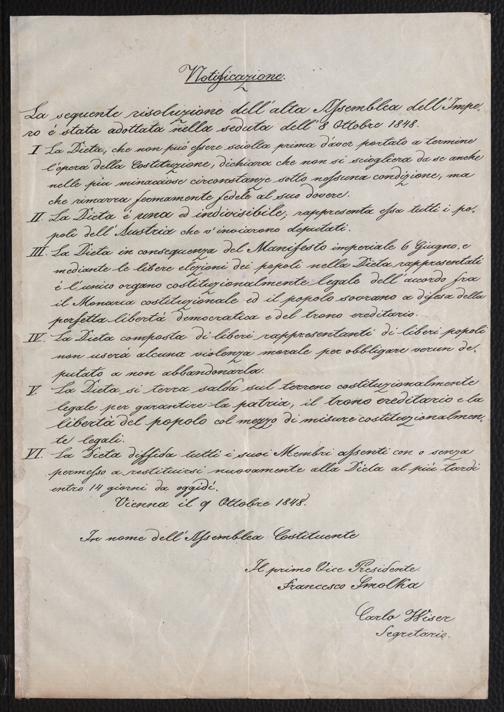 Notificazione.
La seguente risoluzione dell'alta Assemblea dell'Impe-
ro è stata adottata nella seduta dell'8 Ottobre 1848.
I La Dieta, che non può essere sciolta prima d'aver portato a termine
l'opera della Costituzione, dichiara che non si scioglierà da se anche
nelle più minacciose circostanze sotto nessuna condizione, ma
che rimarrà fermamente fedele al suo dovere.
II. La Dieta è una ed indivisibile, rappresenta essa tutti i po-
poli dell'Austria che v'inviarono deputati.
III. La Dieta in conseguenza del Manifesto imperiale 6 Giugno, e
mediante le libere elezioni dei popoli nella Dieta rappresentati
è l'unico organo costituzionalmente legale dell'accordo fra
il Monarca costituzionale ed il popolo sovrano a difesa della
perfetta libertà democratica e del trono ereditario.
IV. La Dieta composta di liberi rappresentanti di liberi popoli
non userà alcuna violenza morale per obbligare verun de-
putato a non abbandonarla.
V. La Dieta si terrà salda sul terreno costituzionalmente
legale per garantire la patria, il trono ereditario e la
libertà del popolo col mezzo di misure costituzionalmen-
te legali.
VI. La Dieta diffida tutti i suoi Membri assenti con o senza
permesso a restituirsi nuovamente alla Dieta al più tardi
entro 14 giorni da oggidì.
Vienna il 9 Ottobre 1848.
In nome dell'Assemblea Costituente
Il primo Vice Presidente
Francesco Smolka
Carlo Wiser
Segretario.